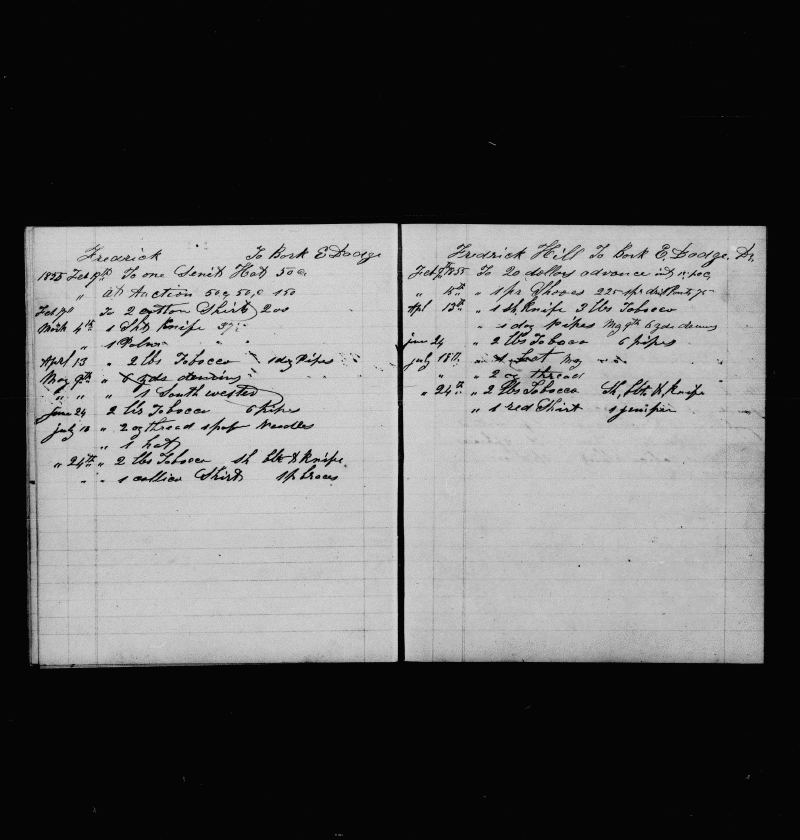 Fredrick To Bark E Dodge
1855 Feb 7th To one Senit Hat 50 c
" At Auction 50, c 50, c 150
Feb To 2 cotton Shirts 200
March 4th " 1 Sht Knife 37
" 1
April 13 " 2 lbs Tobacco 1 doz Pipes
May 9th " 6 yds denims
" " " 1 South wester
june 24 2 lbs Tobacco 6 Pipes
july 18 " 2 oz thread 1 paf Needles
" 1 hat
" 24th " 2 lbs Tobacco sh blt & Knife
" " 1 callico Shirt 1 pr braces
Fredrick Hill To Bark E. Dodge. Dr.
Feb 7th 1855 To 20 dollars advance
" 15th " 1 pr Shooes 225 1 pr
Apl 13th " 1 sh, Knife 3 lbs Tobacco
" 1 doz pipes May 9th 6 yds denims
june 24 " 2 lbs Tobacco 6 pipes
july 18th " 1 hat
" 2 oz thread
" 24th " 2 lbs Tobacco Sh, blt & Knife
" 1 red Shirt 1 jumper